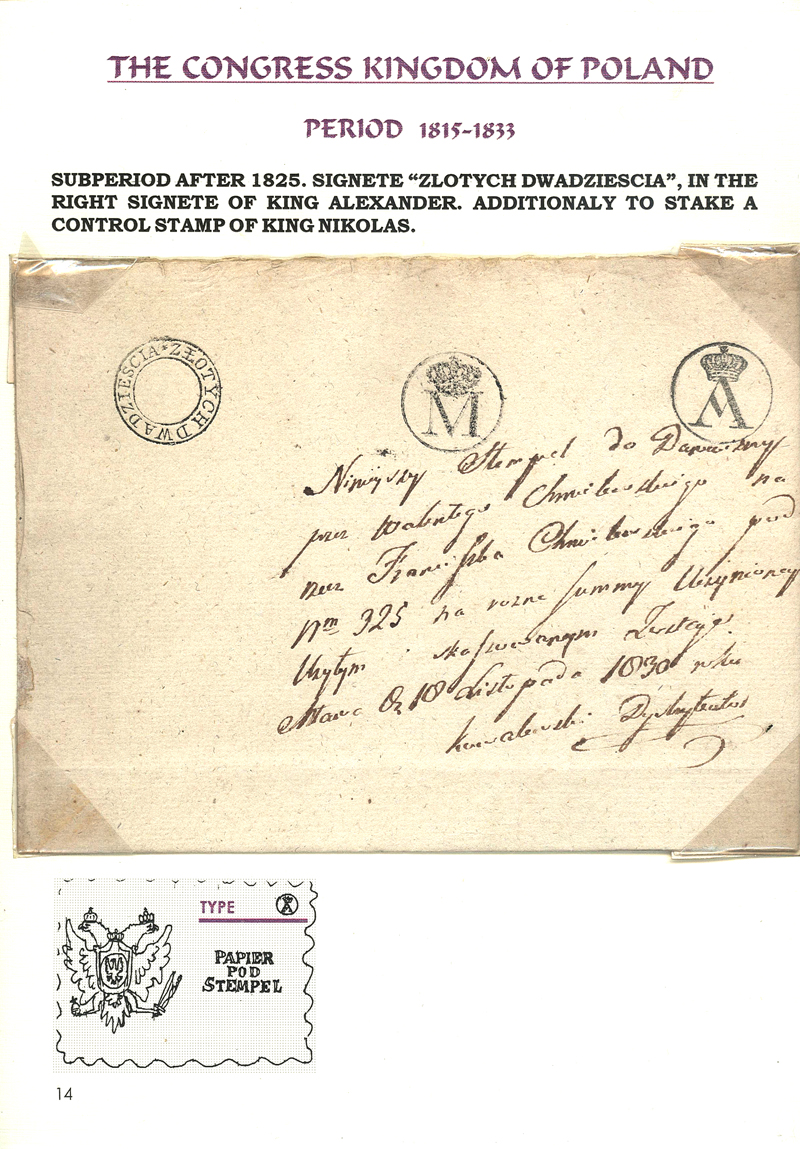 THE CONGRESS KINGDOM OF POLAND
PERIOD 1815-1833
SUBPERIOD AFTER 1825. SIGNETE “ZLOTYCH DWADZIESCIA”, IN THE
RIGHT SIGNETE OF KING ALEXANDER. ADDITIONALY TO STAKE A
CONTROL STAMP OF KING NIKOLAS.
ZŁOTYCH DWADZIESCIA
M
A
Stempel do Darowizny
przez Walentego Chmielewskiego na
rzecz Franciszka Chmielewskiego pod
Nrm 325 na rozne summy
Użytym i skassowanym
18 Listopada 1830 roku
Kowalewski Dystrybutor
TYPE A
PAPIER
POD
STEMPEL
14